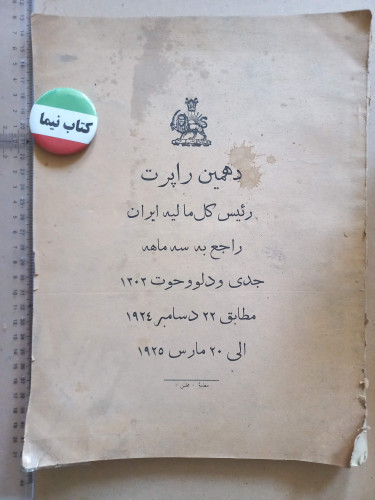 کتاب نیما
دهمین راپرت
رئیس کل مالیه ایران
راجع به سه ماهه
جدی و دلو و حوت ۱۳۰۳
مطابق ۲۲ دسامبر ۱۹۲۴
الی ۲۰ مارس ۱۹۲۵